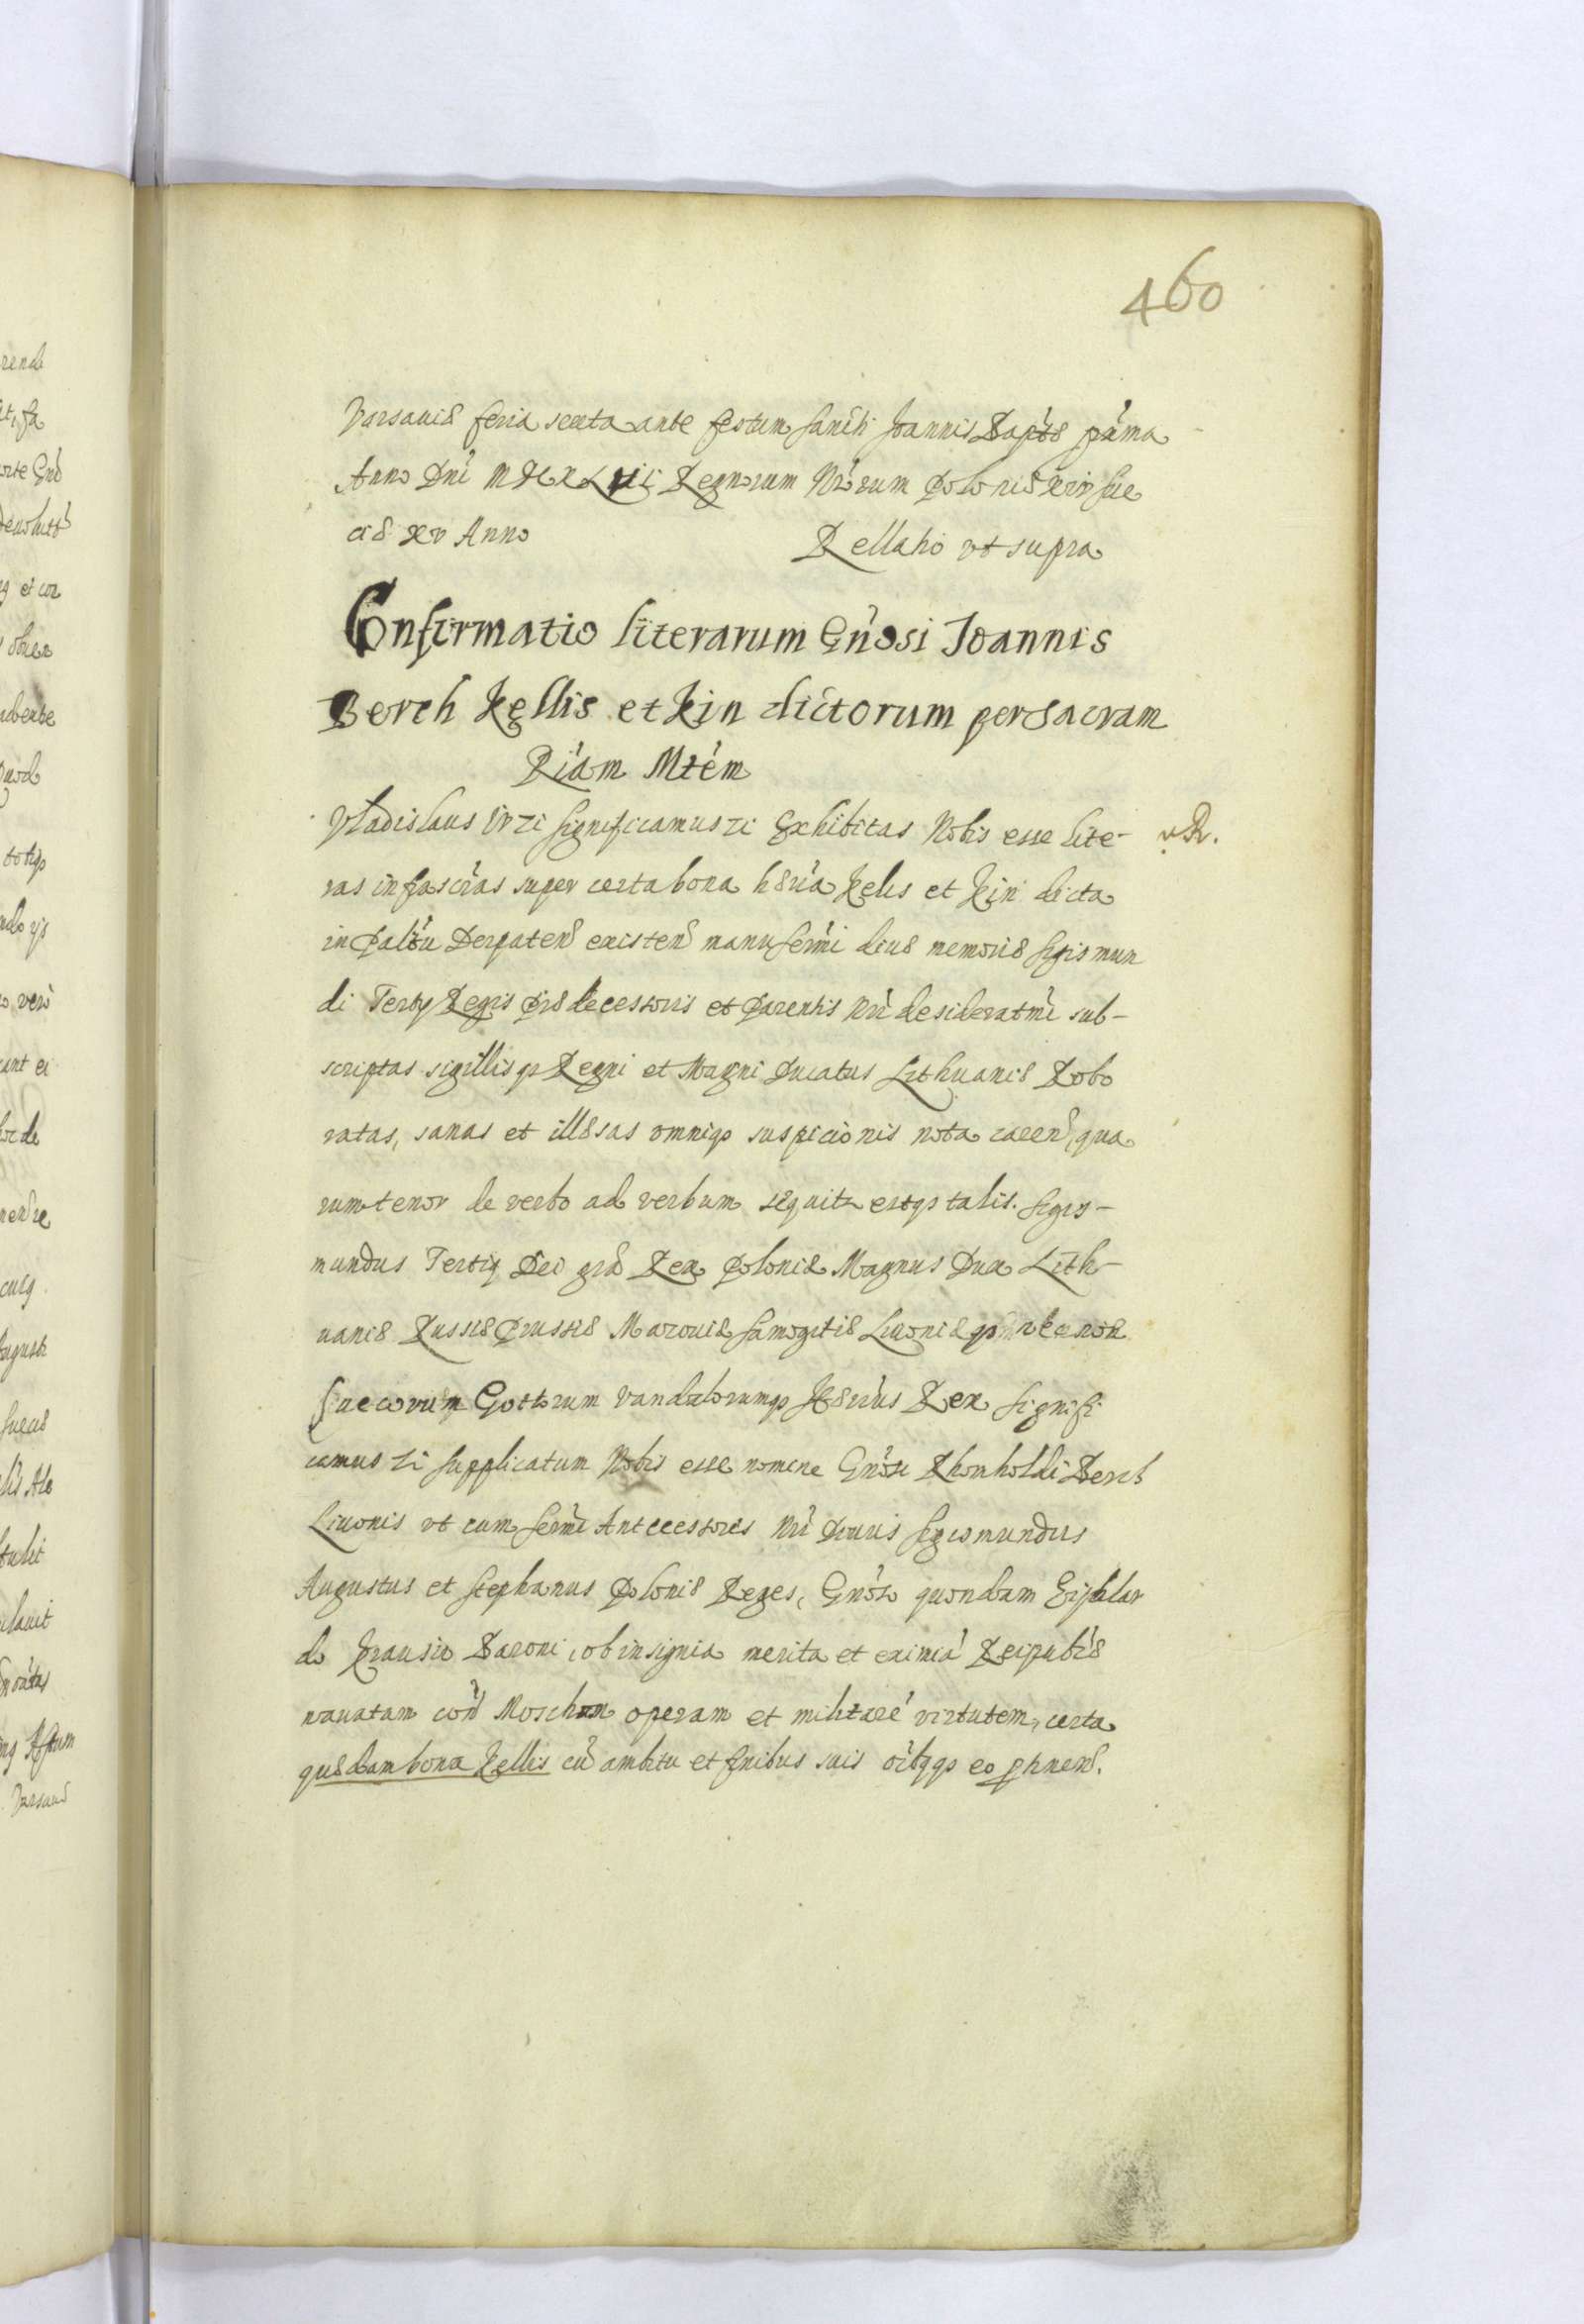 460
Varsauiæ feria sexta ante festum Sancti Joannis Baptæ prima
Anno Dni MDCXLVII Regnorum Nrorum Poloniæ xiv Sue
ciæ xv Anno Rellatio vt supra
Confirmatio literarum Gnosi Joannis
Berch Kellis et Kin dictorum per Sacram
Riam Mtem
Vladislaus IV zi Significamus zi Exhibitas Nobis esse lite- v R.
ras infrascras super certa bona hæria Kelis et Kin dicta
in Paltu Derpaten existen manu Sermi diuæ memoriæ Sigismun
di Tertij Regis Prædecessoris et Parentis Nri desideratmi sub-
scriptas sigillisq Regni et Magni Ducatus Lithuaniæ Robo
ratas, sanas et illæsas omniqo suspicionis nota caren, qua
rum tenor de verbo ad verbum sequitr estqo talis. Sigis-
mundus Tertiq Dei gra Rex Poloniæ Magnus Dux Lith-
uaniæ Russiæ Prussiæ Mazouiæ Samogitiæ Liuoniæ qo necnon
Suecorum Gottorum Vandalorumqo Hærius Rex Signifi
camus zi Supplicatum Nobis esse nomine Gnosi Rhonholdi Berch
Liuonis vt cum Sermi Antecessores Nri Diuus Sigismundus
Augustus et Stephanus Poloniæ Reges, Gnoso quondam
do Krausio Baroni, ob insignia merita et eximia Reipubcæ
nauatam con Moschum operam et militare virtutem, certa
quædam bona Kellis cu ambitu et finibus suis oibqqo eo ptinen.